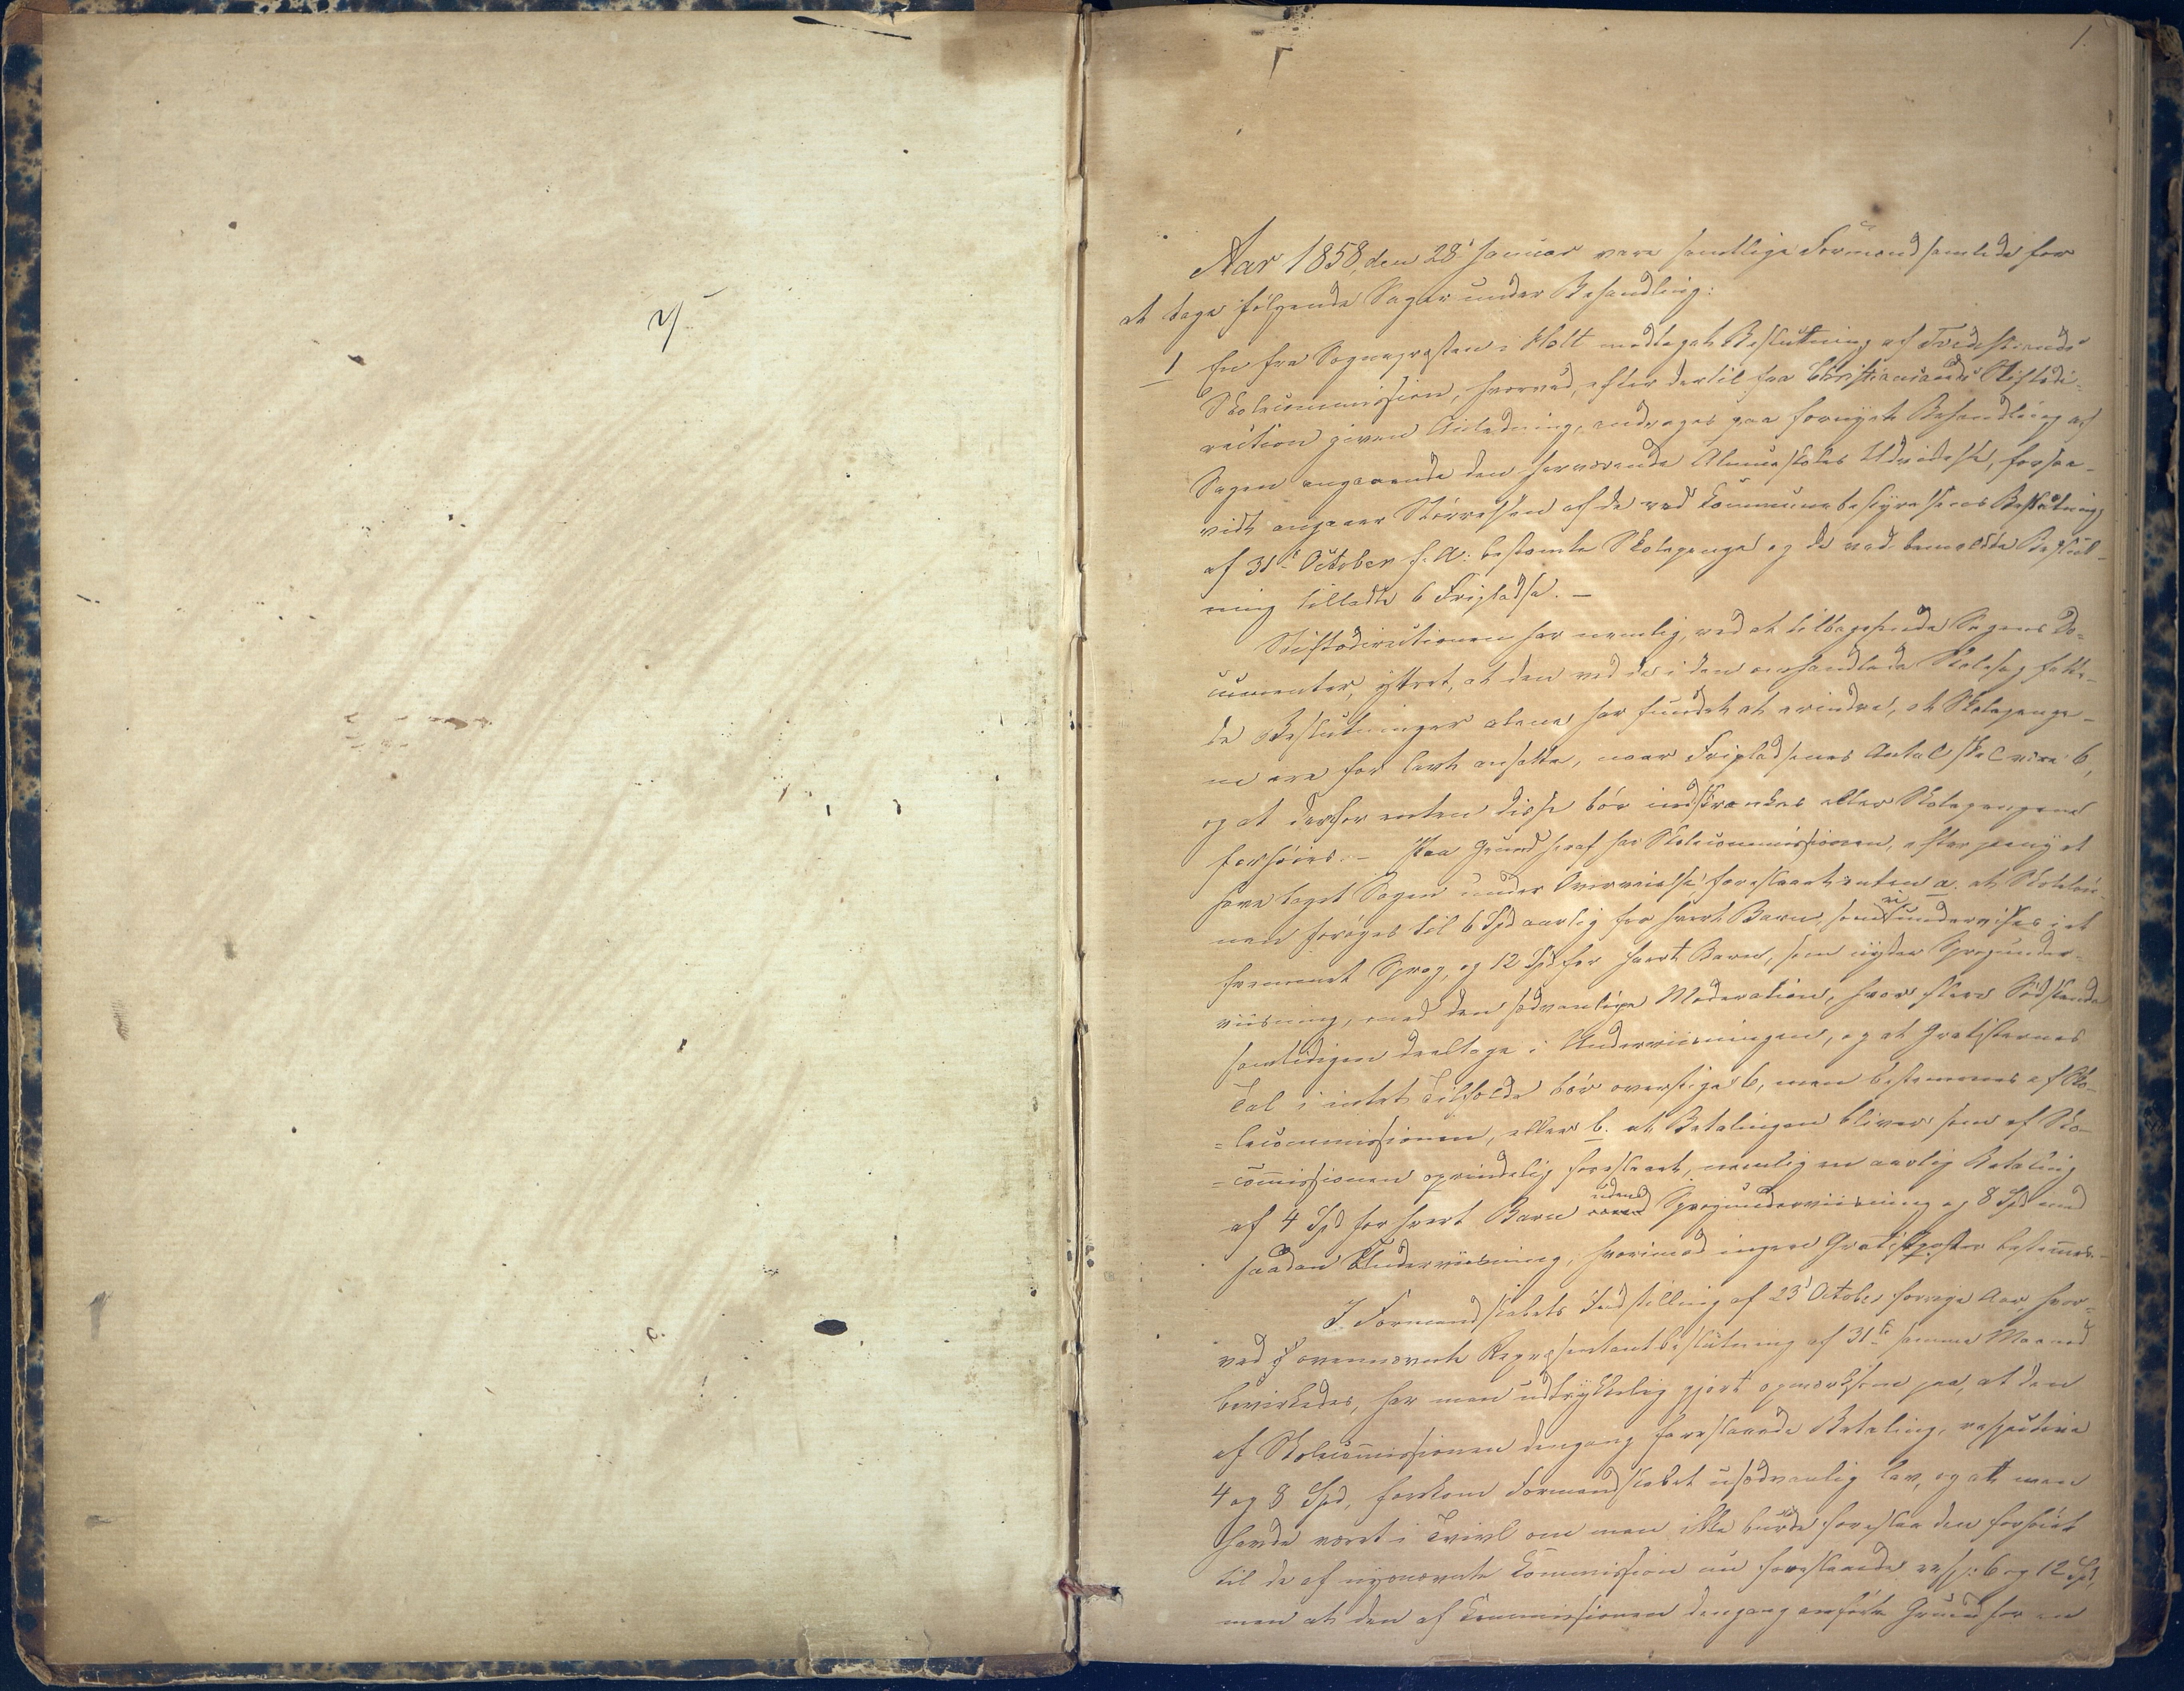 1.
Aar 1858, den 28' Januar vare samtlige Formænd samlede for
at tage følgende Sager under Behandling:
1 En fra Sognepræsten i Holt modtaget Beslutning af Tvedestrands
Skolecommission, hvorved, efter dertil fra Christiansands Stiftsdi-
rection given Anledning, andrages paa fornyet Behandling af
Sagen angaaende den herværende Almueskoles Udvidelse, forsaa-
vidt angaaer Størrelsen af de ved Communebestyrelsens Beslutning
af 31te October f. A. bestemte Skolepenge og de ved bemeldte Beslut-
ning tilladte 6 Fripladse. -
Stiftsdirectionen har nemlig, ved at tilbagesende Sagens Do-
cumenter, yttret, at den ved de i den omhandlede Skolesag fatte-
de Beslutninger alene har fundet at erindre, at Skolepenge-
ne ere for lavt ansatte, naar Fripladsenes Antal skal være 6,
og at derfor enten disse bør indskrænkes eller Skolepengene
forhøies. - Paa Grund heraf har Skolecommissionen, efter paany at
have taget Sagen under Overveielse, foreslaaet enten a. at Skoleløn-
nen forøges til 6 Spd aarlig for hvert Barn, som ei undervises i et
fremmet Sprog, og 12 Spd for hvert Barn, som nyder Sprogunder-
viisning, med den sædvanlige Moderation, hvor flere Sødskende
samtidigen deeltage i Underviisningen, og at Gratisternes
Tal i intet Tilfælde bør overstige 6, men bestemmes af Sko-
=lecommissionen, eller b. at Betalingen bliver som af Sko-
=comissionen oprindelig foreslaaet, nemlig en aarlig Betaling
af 4 Spd for hvert Barn uden Sprogunderviisning og 8 Spd med
saadan Underviisning, hvorimod ingen bestemes.
I Formandskabets Indstilling af 23' October forrige Aar, hvor-
ved ovennævnte Repræsentantbeslutning af 31te samme Maaned
bevirkedes, har man udtrykkelig gjort opmærksom paa, at den
af Skolecommissionen dengang foreslaaede Betaling, respective
4 og 8 Spd, forekom Formandskabet usædvanlig lav, og at man
havde været i Tvivl om man ikke burde foreslaa den forhøiet
til de af nysnævnte Commission nu foreslaaede resp: 6 og 12 Spd,
men at den af Commissionen dengang anførte Grund for en